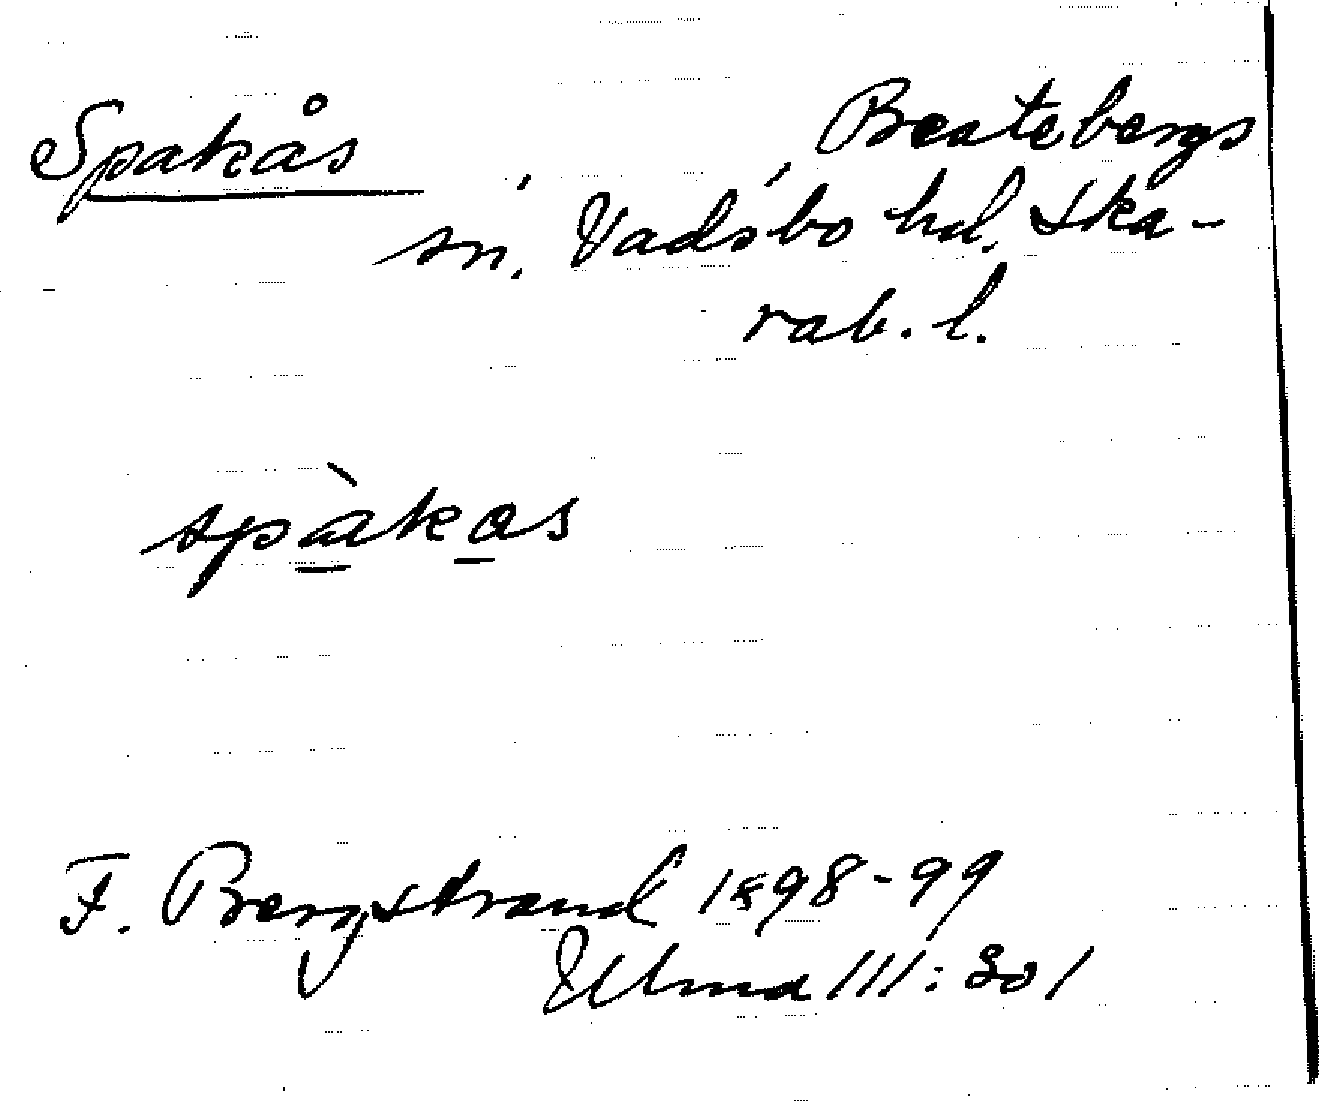 Spakås
Beatebergs
sn. Vadsbo hd. Ska-
rab. l.
spàkas
F. Bergstrand 1898-99
Ulma 111:301